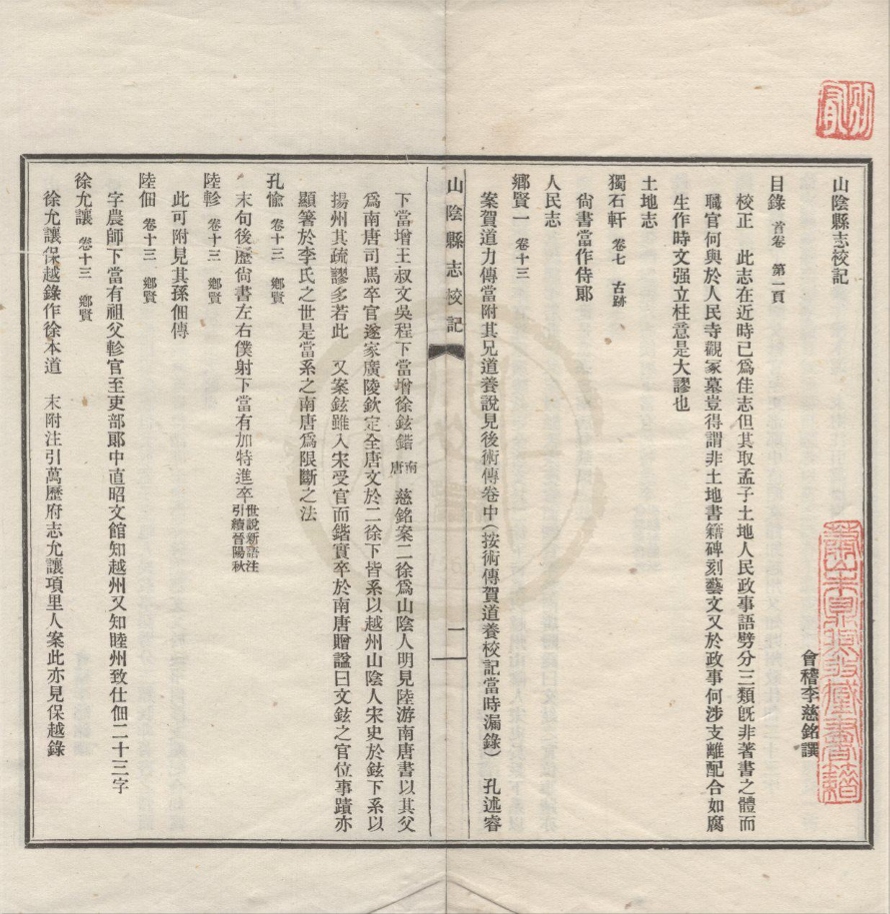 山陰縣志校記
會稽李慈銘譔
目錄 首卷 第一頁
校正 此志在近時已爲佳志但其取孟子土地人民政事語劈分三類旣非著書之體而
職官何與於人民寺觀冢墓豈得謂非土地書籍碑刻藝文又於政事何涉支離配合如腐
生作時文强立柱意是大謬也
土地志
獨石軒 卷七 古跡
尙書當作侍郞
人民志
鄕賢一 卷十三
案賀道力傳當附其兄道養說見後術傳卷中(按術傳賀道養校記當時漏錄) 孔述睿
山陰縣志校記
一
下當增王叔文吳程下當增徐鉉鍇 南唐 慈銘案二徐爲山陰人明見陸游南唐書以其父
爲南唐司馬卒官遂家廣陵欽定全唐文於二徐下皆系以越州山陰人宋史於鉉下系以
揚州其疏謬多若此 又案鉉雖入宋受官而鍇實卒於南唐贈諡曰文鉉之官位事蹟亦
顯箸於李氏之世是當系之南唐爲限斷之法
孔愉 卷十三 鄕賢
末句後歷尙書左右僕射下當有加特進卒 世說新語注引續晉陽秋
陸軫 卷十三 鄕賢
此可附見其孫佃傳
陸佃 卷十三 鄕賢
字農師下當有祖父軫官至吏部郞中直昭文館知越州又知睦州致仕佃二十三字
徐允讓 卷十三 鄕賢
徐允讓保越錄作徐本道 末附注引萬歷府志允讓項里人案此亦見保越錄